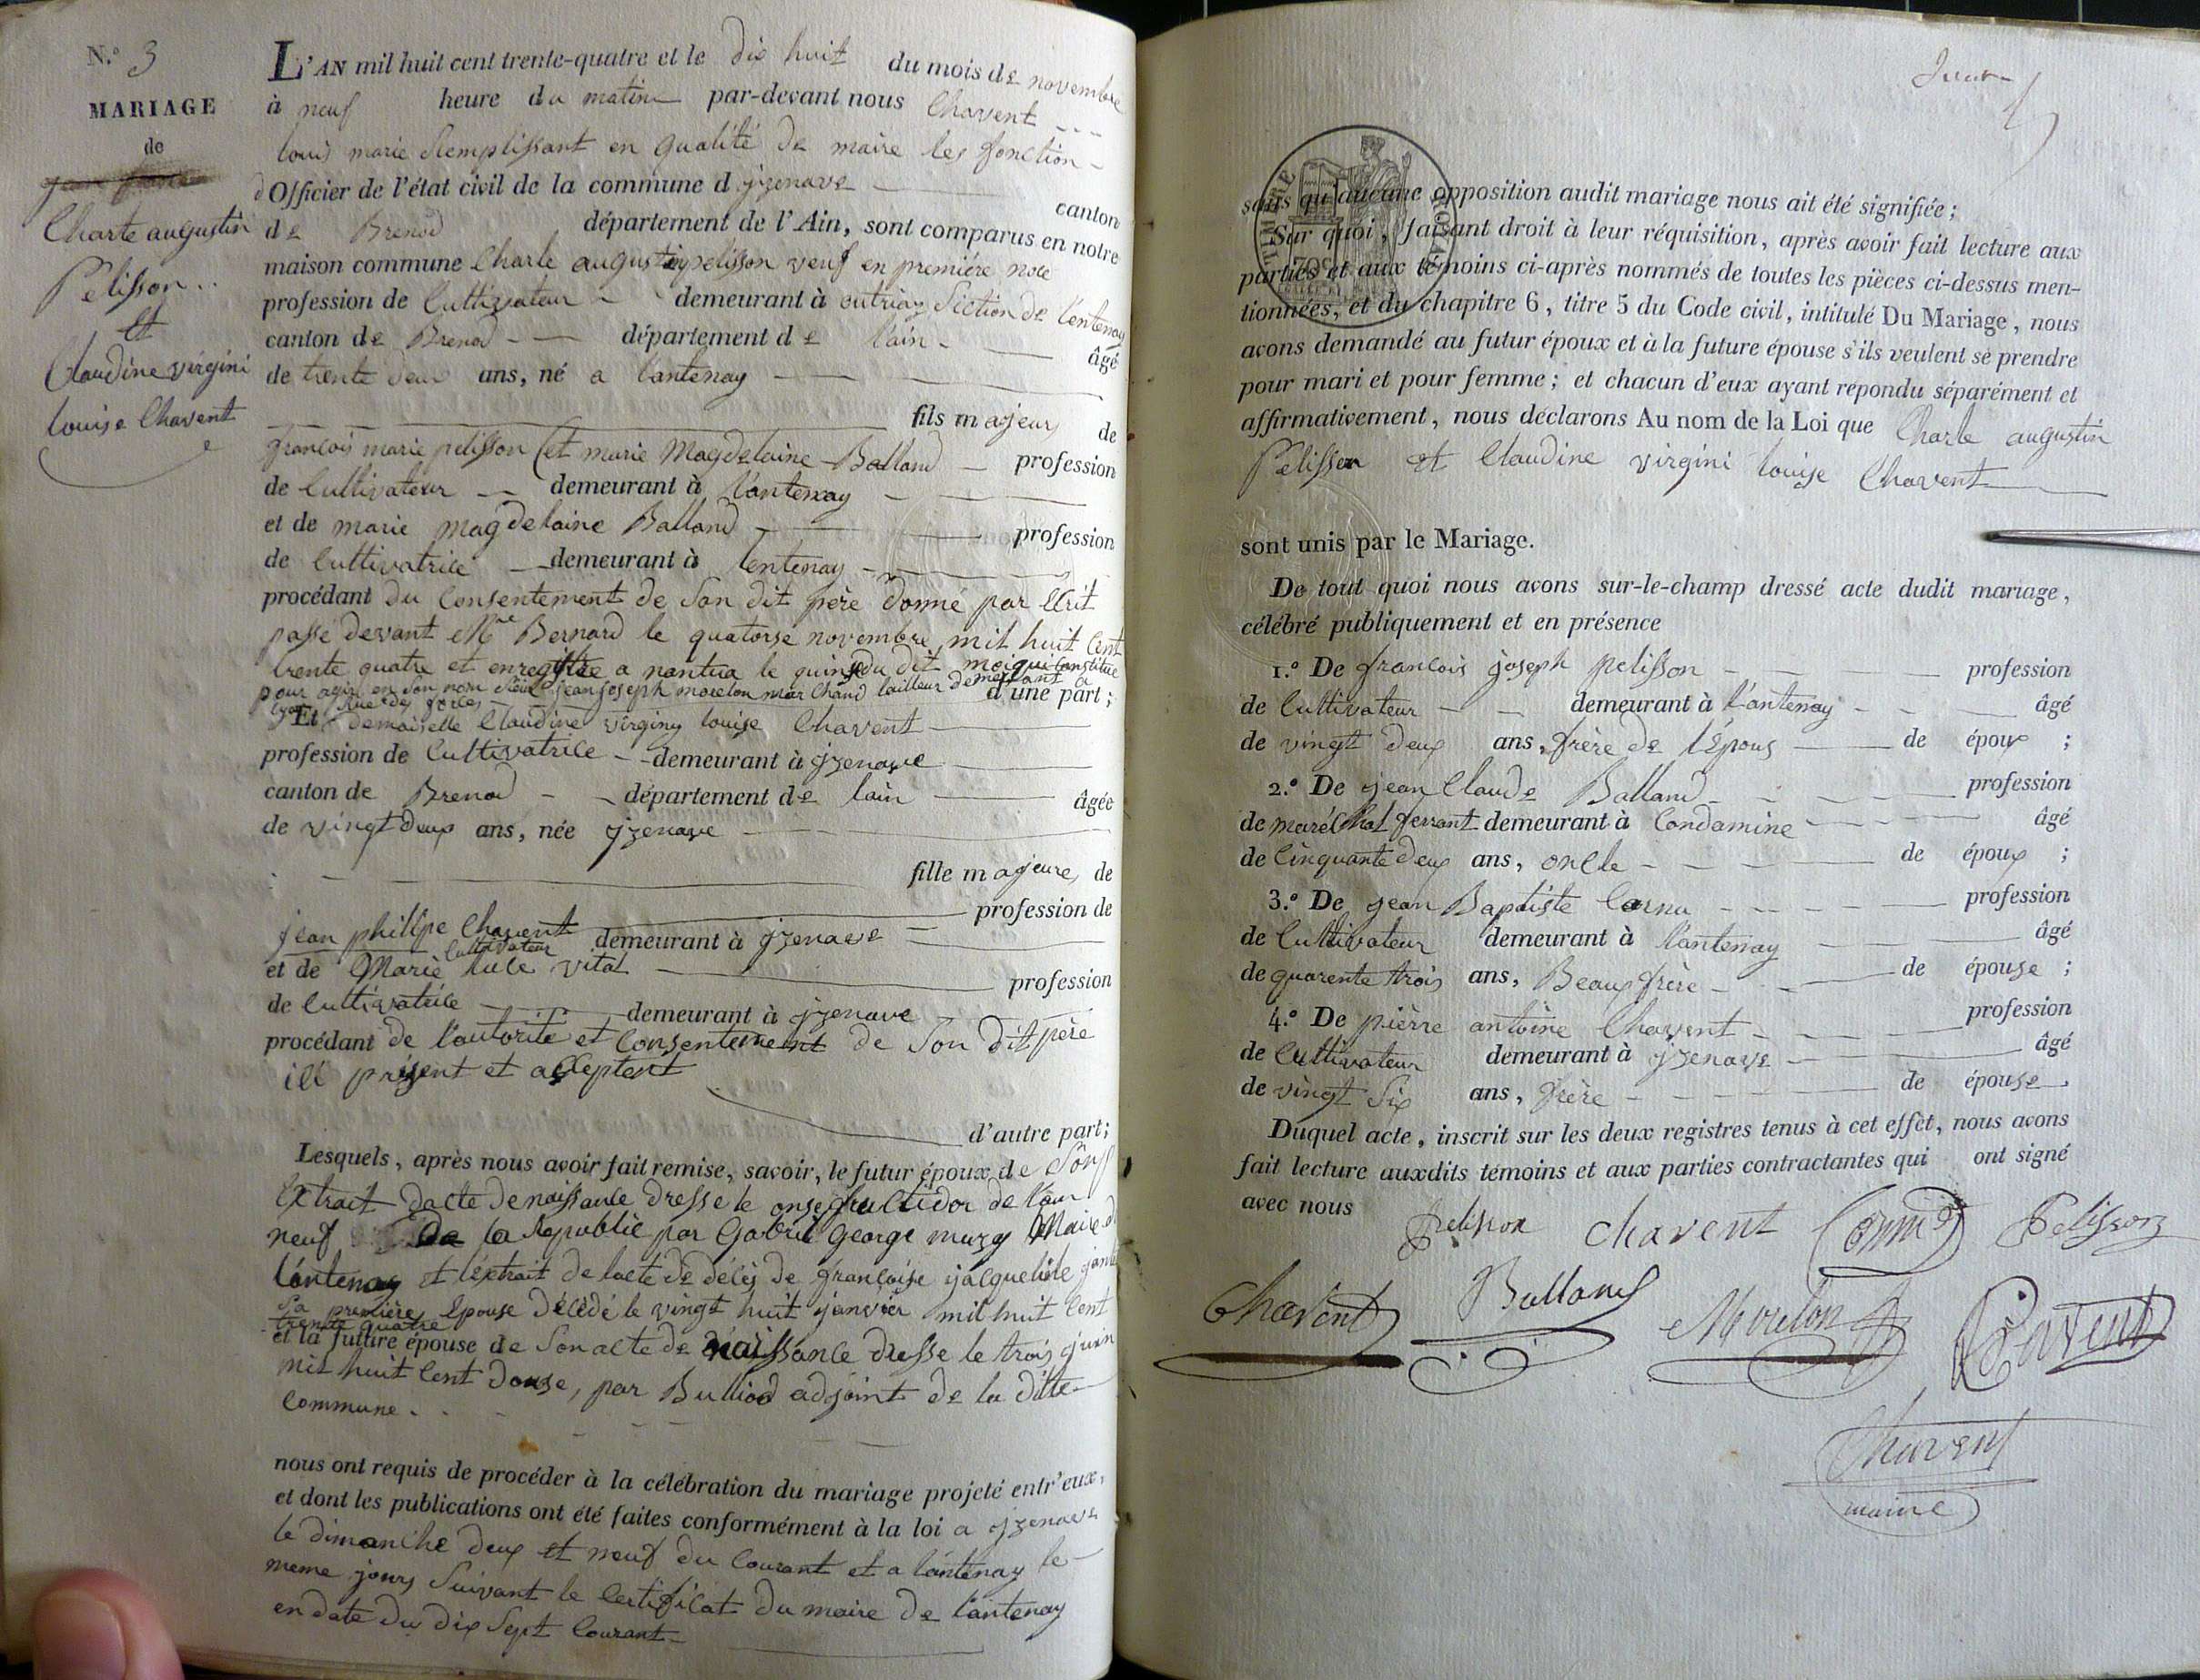 N.º 3
MARIAGE
de
Charle augustin
Pélisson..
et
Claudine virgini
louise Chavent
L'AN mil huit cent trente-quatre et le dix huit du mois de novembre
à neuf heure du matin par-devant nous Chavent
louis marie Remplissant en qualité de maire les fonction
d'Officier de l'état civil de la commune d jzenave canton
de Brenod département de l'Ain, sont comparus en notre
maison commune Charle augustin pelisson veuf en première noce
profession de Cultivateur demeurant à outriaz Section de lentenay
canton de Brenod département de l'ain âgé
de trente deux ans, né a lantenay
fils majeur de
françois marie pelisson (et marie Magdelaine Balland profession
de Cultivateur demeurant à lantenay
et de marie magdelaine Balland profession
de Cultivatrice demeurant à lentenay
procédant du Consentement de Son dit père donné par Ecrit
passé devant Me Bernard le quatorse novembre mil huit Cent
trente quatre et enregistree a nantua le quinse du dit mois qui Constitue
pour agir en Son nom jean joseph moreton marchand tailleur demeurant a
lyon Rue des d'une part;
Et demoiselle Claudine virginy louise Chavent
profession de Cultivatrice demeurant à jzenave
canton de Brenod département de lain âgée
de vingt deux ans, née jzenave
fille majeure de
jean philipe Chavent profession de
Cultivateur demeurant à jzenave
et de Marie luce vital profession
de Cultivatrice demeurant à jzenave
procédant de l'autorité et Consentement de Son dit père
ici présent et acceptent
d'autre part;
Lesquels, après nous avoir fait remise, savoir, le futur époux de Son
Extrait dacte de naissance dresse le onse fructidor de l'an
neuf De la Republic par Gabriel George muzy Maire d
lantenay et l'extrait de lacte de décès de françoise jacqueline
Sa première Epouse Décédé le vingt huit janvier mil huit Cent
trente quatre
et la future épouse de Son acte de naissance dresse le trois juin
mil huit Cent douse, par Bulliod adjoint de la ditte
Commune.
nous ont requis de procéder à la célébration du mariage projeté entr'eux,
et dont les publications ont été faites conformément à la loi a jzenave
le dimanche deux et neuf du Courant et a lantenay le
meme jours Suivant le Certificat du maire de lantenay
en date du dix Sept Courant
TIMBRE ROYAL
70c
sans qu'aucune opposition audit mariage nous ait été signifiée;
Sur quoi, faisant droit à leur réquisition, après avoir fait lecture aux
parties et aux témoins ci-après nommés de toutes les pièces ci-dessus men-
tionnées, et du chapitre 6, titre 5 du Code civil, intitulé Du Mariage, nous
avons demandé au futur époux et à la future épouse s'ils veulent se prendre
pour mari et pour femme; et chacun d'eux ayant répondu séparément et
affirmativement, nous déclarons Au nom de la Loi que Charle augustin
Pélisson et Claudine virgini louise Chavent
sont unis par le Mariage.
De tout quoi nous avons sur-le-champ dressé acte dudit mariage,
célébré publiquement et en présence
1.º De françois joseph pelisson profession
de Cultivateur demeurant à lantenay âgé
de vingt deux ans, frère de l'Epoux de époux ;
2.º De jean Claude Balland profession
de maréchal ferrant demeurant à Condamine âgé
de Cinquante deux ans, oncle de époux ;
3.º De jean Baptiste Cornu profession
de Cultivateur demeurant à lantenay âgé
de quarente trois ans, Beaux frère de épouse ;
4.º De pièrre antoine Chavent profession
de Cultivateur demeurant à jzenave âgé
de vingt Six ans, frère de épouse.
Duquel acte, inscrit sur les deux registres tenus à cet effet, nous avons
fait lecture auxdits témoins et aux parties contractantes qui ont signé
avec nous
pelisson Chavent Cornu Pelisson
Chavent Balland Moreton Chavent
Chavent
maire